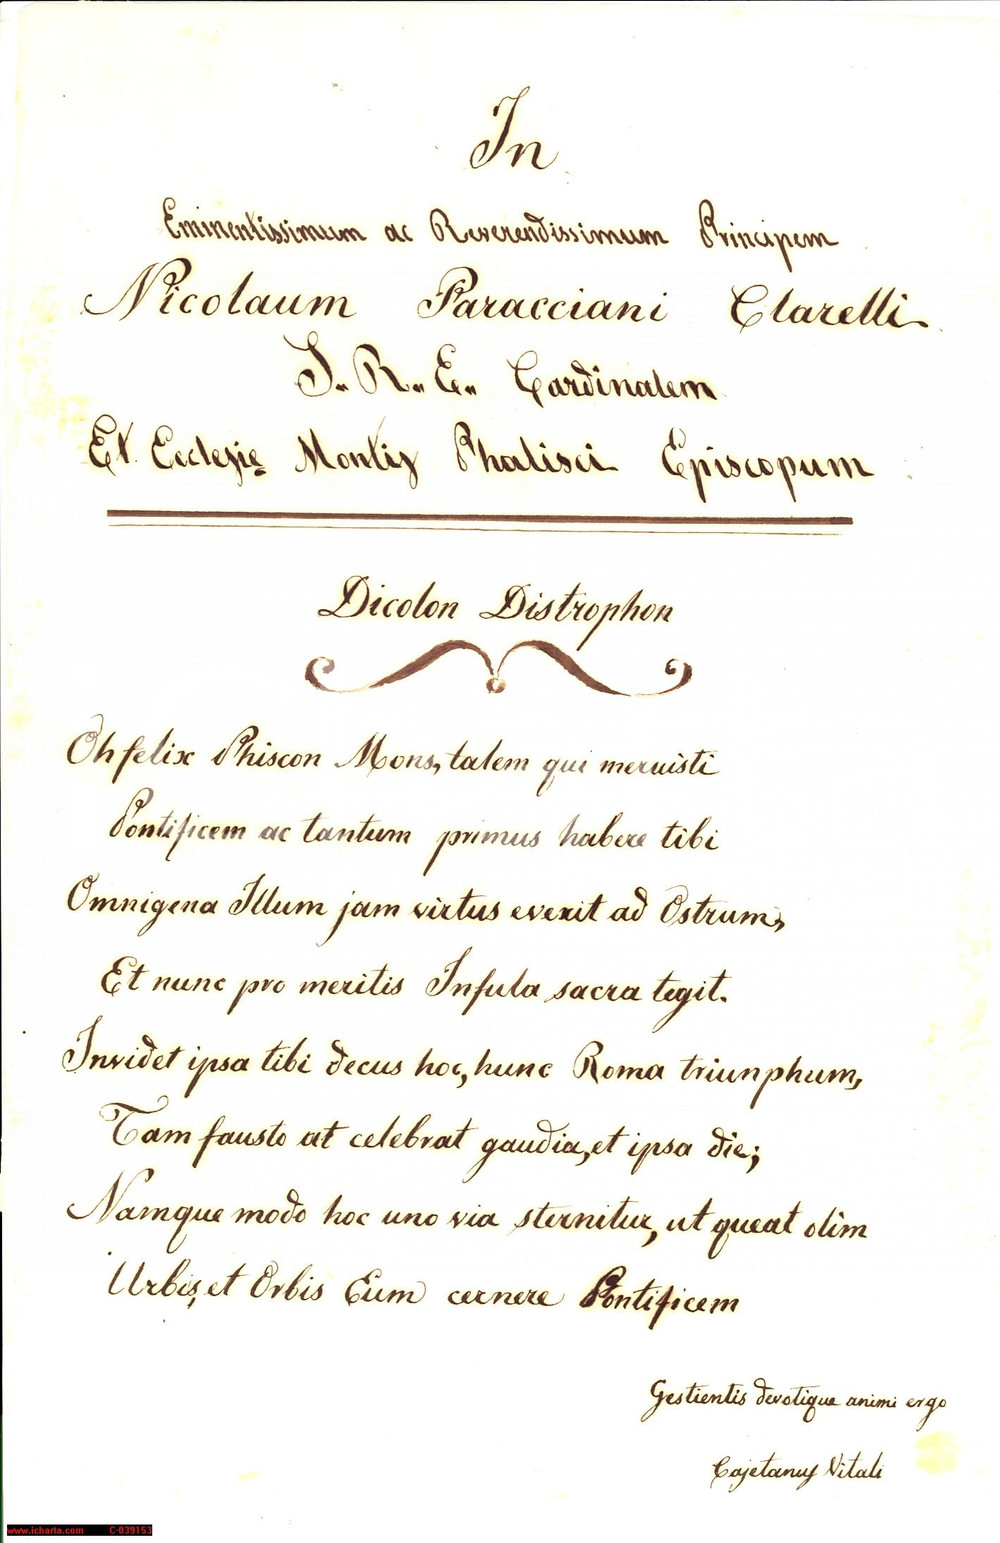 In
Eminentissimum ac Reverendissimum Principem
Nicolaum Paracciani Clarelli
S. R. E. Cardinalem
Et Ecclesię Montis Phalisci Episcopum
Dicolon Distrophon
Oh felix Phiscon Mons, talem qui meruisti
Pontificem ac tantum primus habere tibi
Omnigena Illum jam virtus evexit ad Ostrum,
Et nunc pro meritis Infula sacra tegit.
Invidet ipsa tibi decus hoc, hunc Roma triunphum,
Tam fausto at celebrat gaudia, et ipsa die;
Namque modo hoc uno via sternitur, ut queat olim
Urbis, et Orbis Eum cernere Pontificem
Gestientis devotique animi ergo
Cajetanus Vitali
www.icharta.com C-039153